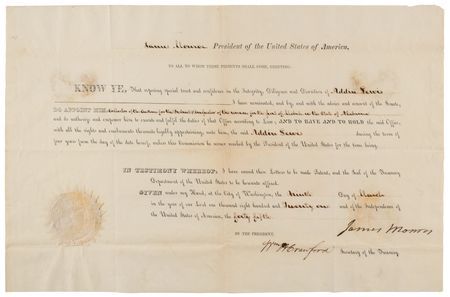 James Monroe President of the United States of America,
TO ALL TO WHOM THESE PRESENTS SHALL COME, GREETING:
KNOW YE, That reposing special trust and confidence in the Integrity, Diligence and Discretion of Addin Lewis
I have nominated, and by, and with the advice and consent of the Senate,
DO APPOINT HIM Collector of the Customs for the District Inspector of the revenue for the port of Mobile in the State of Alabama
and do authorize and empower him to execute and fulfil the duties of that Office according to Law; AND TO HAVE AND TO HOLD the said Office,
with all the rights and emoluments thereunto legally appertaining, unto him, the said Addin Lewis during the term of
four years from the day of the date hereof, unless this Commission be sooner revoked by the President of the United States for the time being.
IN TESTIMONY WHEREOF, I have caused these Letters to be made Patent, and the Seal of the Treasury
Department of the United States to be hereunto affixed.
GIVEN under my Hand, at the City of Washington, the Ninth Day of March
in the year of our Lord one thousand eight hundred and Twenty one and of the Independence of
the United States of America, the forty fifth.
BY THE PRESIDENT,
James Monroe
Wm H Crawford Secretary of the Treasury